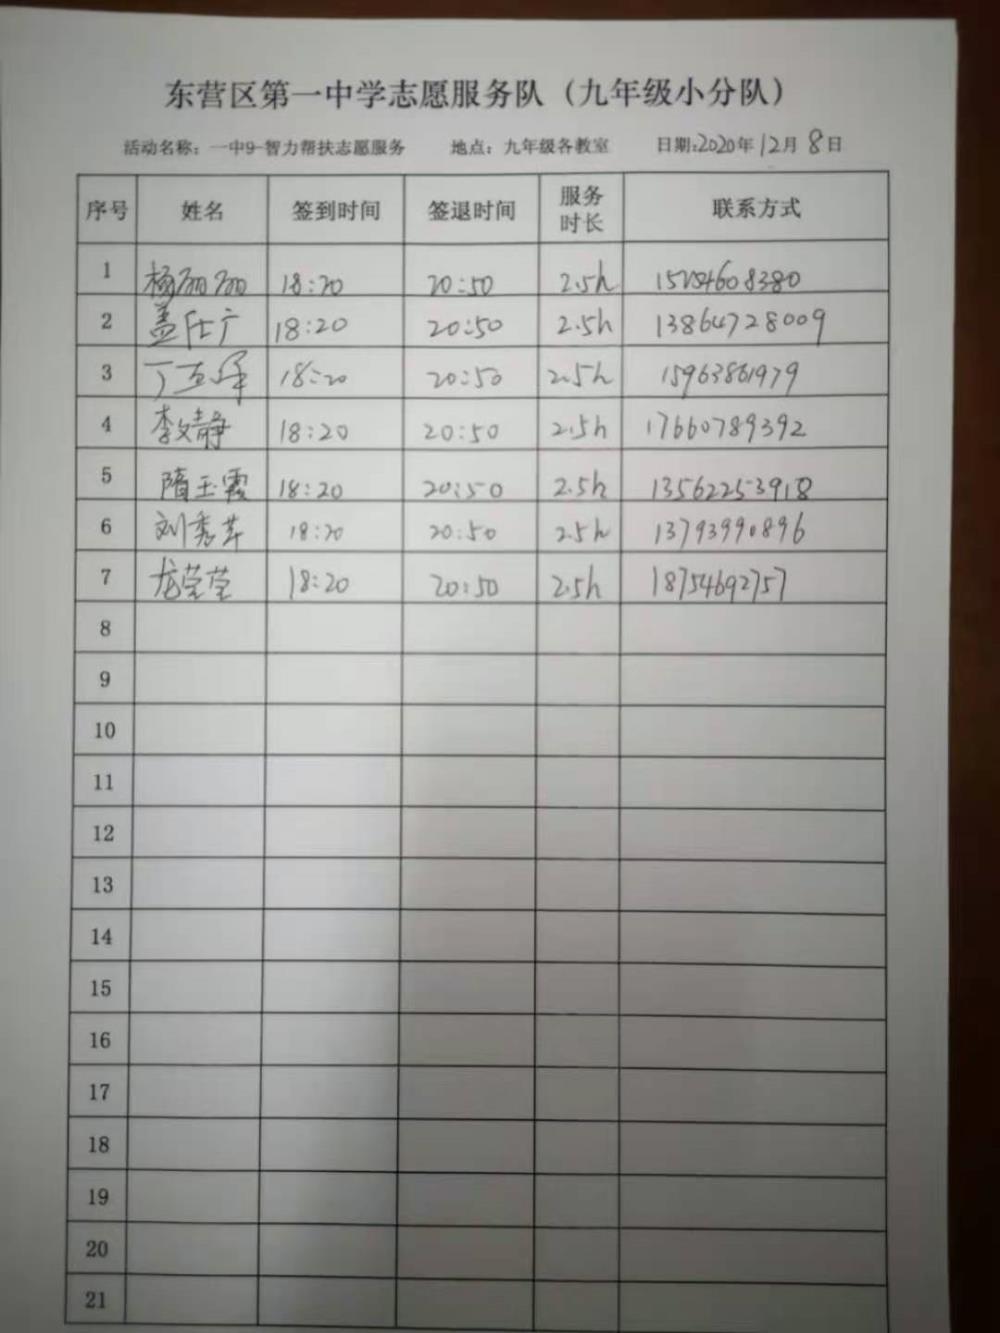 东营区第一中学志愿服务队（九年级小分队）
活动名称：一中9-智力帮扶志愿服务 地点：九年级各教室 日期:2020年12月8日
序号 姓名 签到时间 签退时间 服务时长 联系方式
1 杨丽丽 18:20 20:50 2.5h 15254608380
2 盖仕广 18:20 20:50 2.5h 13864728009
3 18:20 20:50 2.5h 15963861979
4 李文静 18:20 20:50 2.5h 17660789392
5 隋玉霞 18:20 20:50 2.5h 13562253918
6 刘秀芹 18:20 20:50 2.5h 13793990896
7 龙莹莹 18:20 20:50 2.5h 18754692757
8
9
10
11
12
13
14
15
16
17
18
19
20
21